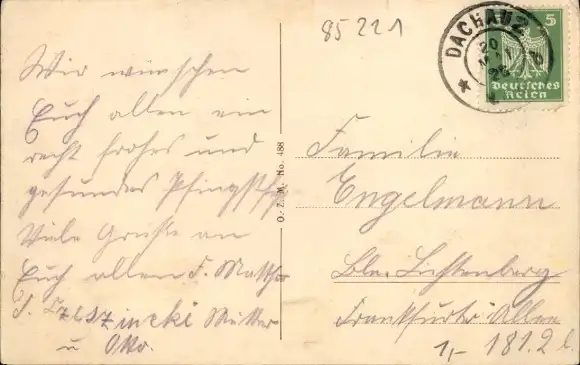 85221
DACHAU 2
20
26
5
Deutsches
Reich
Wir wünschen
Euch allen ein
recht frohes und
gesundes Pfingstf
Viele Grüße an
Euch allen F.
Mutter
u Otto.
O. Z. M. No. 488
Familie
Engelmann
Bln. Lichtenberg
Frankfurter Allee
1,- 181.2